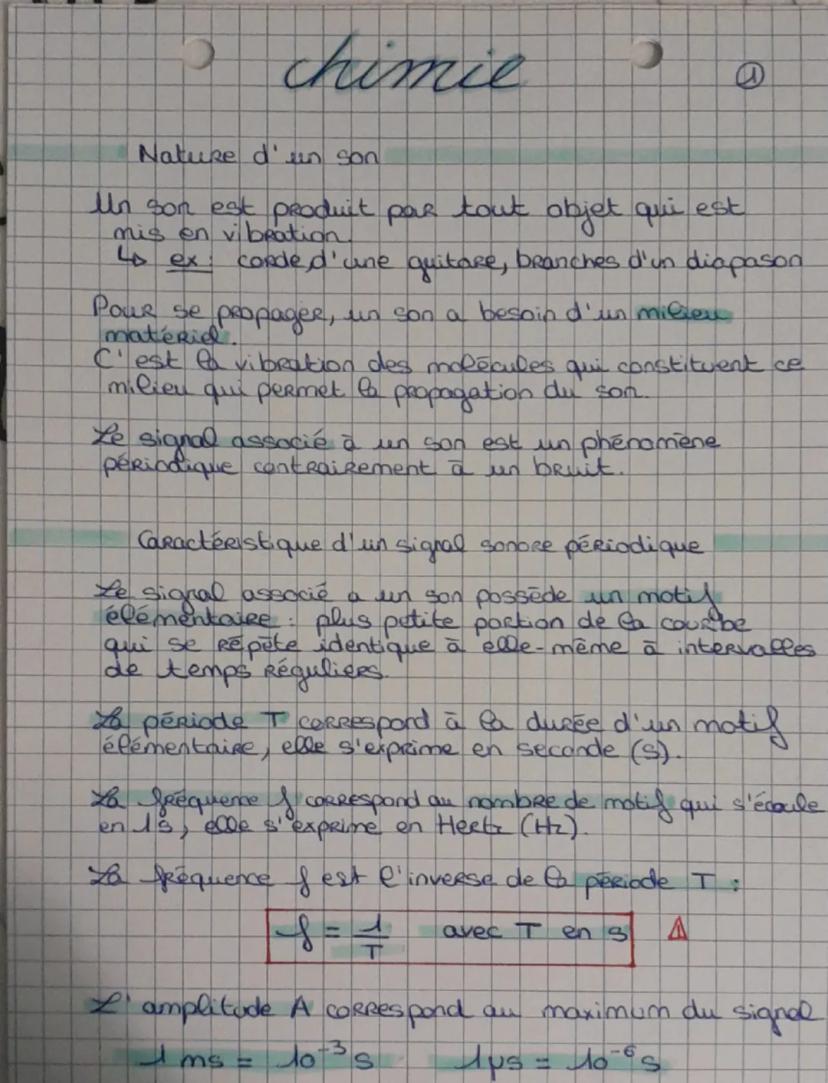 chimie
①
Nature d'un son
Un son est produit par tout objet qui est
mis en vibration.
↳ ex: corde d'une guitare, branches d'un diapason
Pour se propager, un son a besoin d'un milieu
matériel.
C'est la vibration des molécules qui constituent ce
milieu qui permet la propagation du son.
Le signal associé à un son est un phénomène
périodique contrairement à un bruit.
Caractéristique d'un signal sonore périodique
Le signal associé a un son possède un motif
élémentaire : plus petite portion de la courbe
qui se répète identique à elle-même à intervalles
de temps réguliers.
La période T correspond à la durée d'un motif
élémentaire, elle s'exprime en seconde (s).
La fréquence f correspond au nombre de motif qui s'écoule
en 1s, elle s'exprime en Hertz (Hz).
La fréquence f est l'inverse de la période T :
f = 1/T avec T en s ⚠
L'amplitude A correspond au maximum du signal
1 ms = 10⁻³ s 1 µs = 10⁻⁶ s